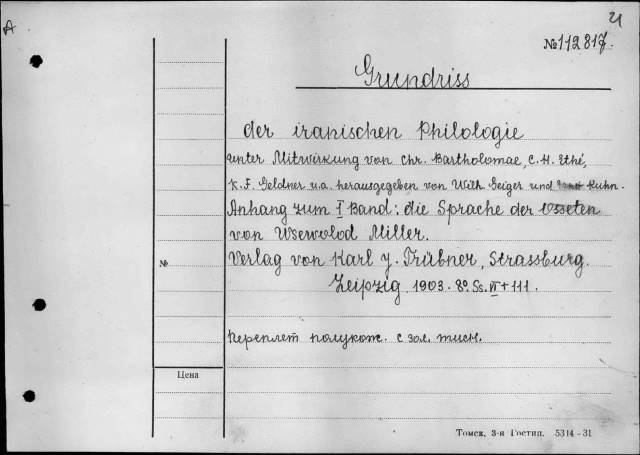 A
21
№ 112817.
Grundriss
der iranischen Philologie
unter Mitwirkung von Chr. Bartholomae, C. H. Ethé,
K. F. Geldner u.a. herausgegeben von Wilh. Geiger und Kuhn.
Anhang zum I Band: die Sprache der Osseten
von Wsewolod Miller.
№
Verlag von Karl J. Trübner, Strassburg.
Leipzig 1903. 8° Ss. VI + 111.
Переплет полукож. с зол. тисн.
Цена
Томск, 3-я Гостип. 5314-31